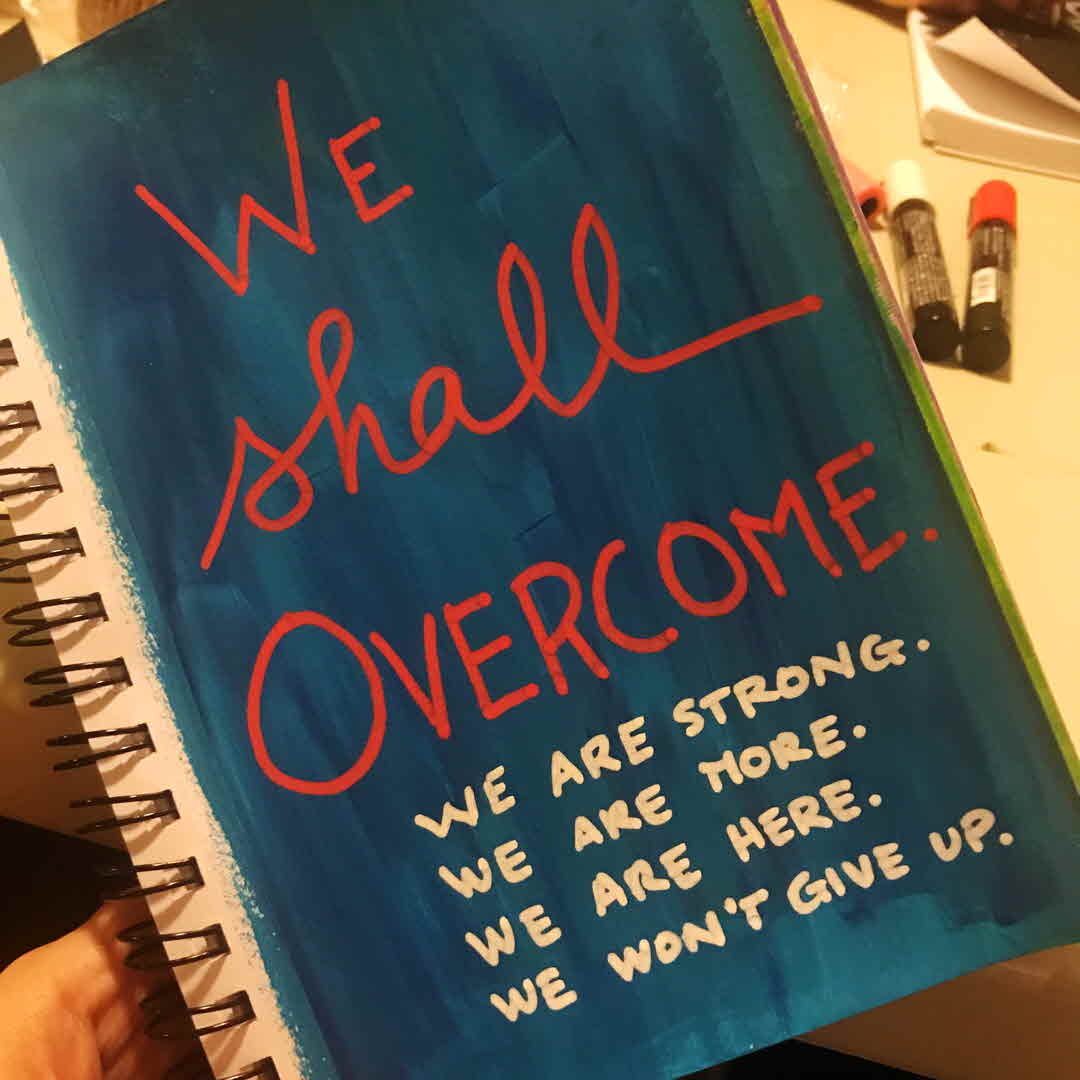 WE
shall
OVERCOME.
WE ARE STRONG.
WE ARE MORE.
WE ARE HERE.
WE WON'T GIVE UP.